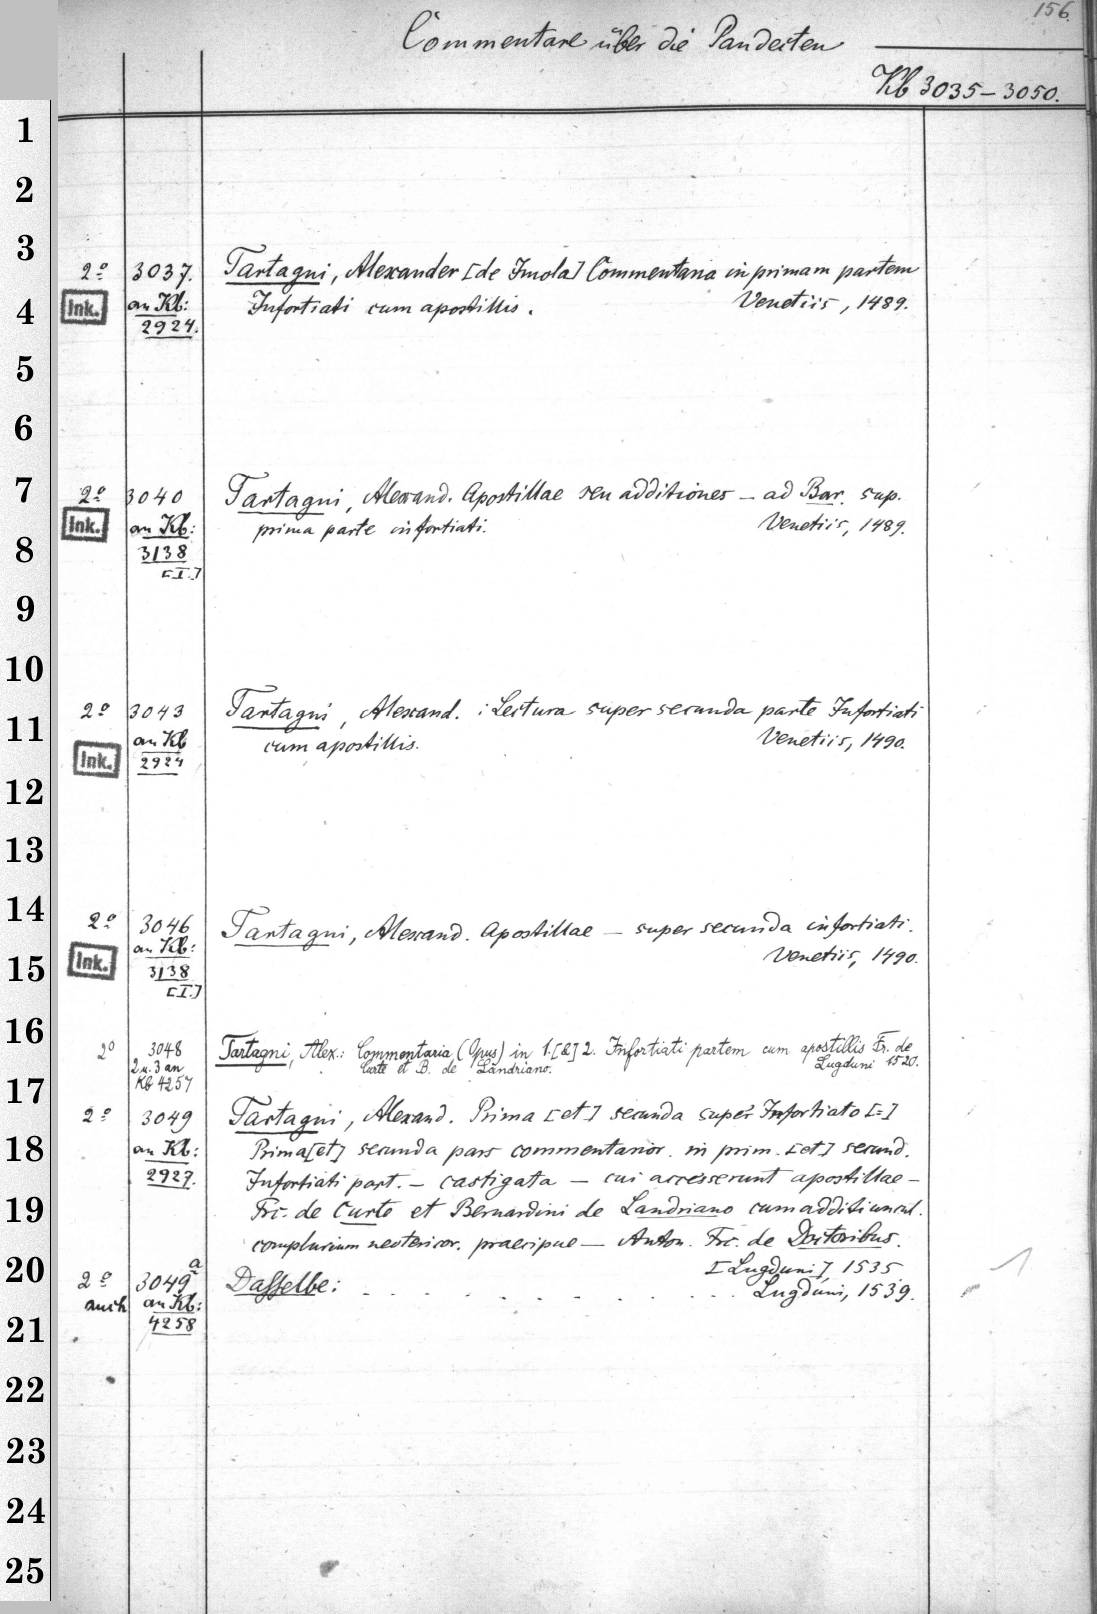 156.
Commentare über die Pandecten
Kb 3035–3050.
1
2
3
2º 3037. Tartagni, Alexander [de Imola] Commentaria in primam partem
4 Ink. an Kb: Infortiati cum apostillis. Venetiis, 1489.
2924.
5
6
7 2º 3040 Tartagni, Alexand. Apostillae seu additiones – ad Bar. sup.
Ink. an Kb: prima parte infortiati. Venetiis, 1489.
8 3138
[I.]
9
10
2º 3043 Tartagni, Alexand.: Lectura super secunda parte Infortiati
11 an Kb cum apostillis. Venetiis, 1490.
Ink. 2924
12
13
14 2º 3046 Tartagni, Alexand. Apostillae – super secunda infortiati.
an Kb: Venetiis, 1490.
15 Ink. 3138
[I.]
16
2º 3048 Tartagni, Alex.: Commentaria (Opus) in 1.[&] 2. Infortiati partem cum apostillis Fr. de
2 u. 3 an Curte et B. de Landriano. Lugduni 1520.
17 Kb 4257
2º 3049 Tartagni, Alexand. Prima [et] secunda super Infortiato [=]
18 an Kb: Prima [et] secunda pars commentarior. in prim. [et] secund.
2927. Infortiati part. – castigata – cui accesserunt apostillae –
19 Frc. de Curte et Bernardini de Landriano cum additiuncul.
complurium neotericor. praecipue – Anton. Frc. de Doctoribus.
20 [Lugduni] 1535
2º 3049a Dasselbe: . . . . . . . . . Lugduni, 1539.
auch an Kb:
21 4258
22
23
24
25